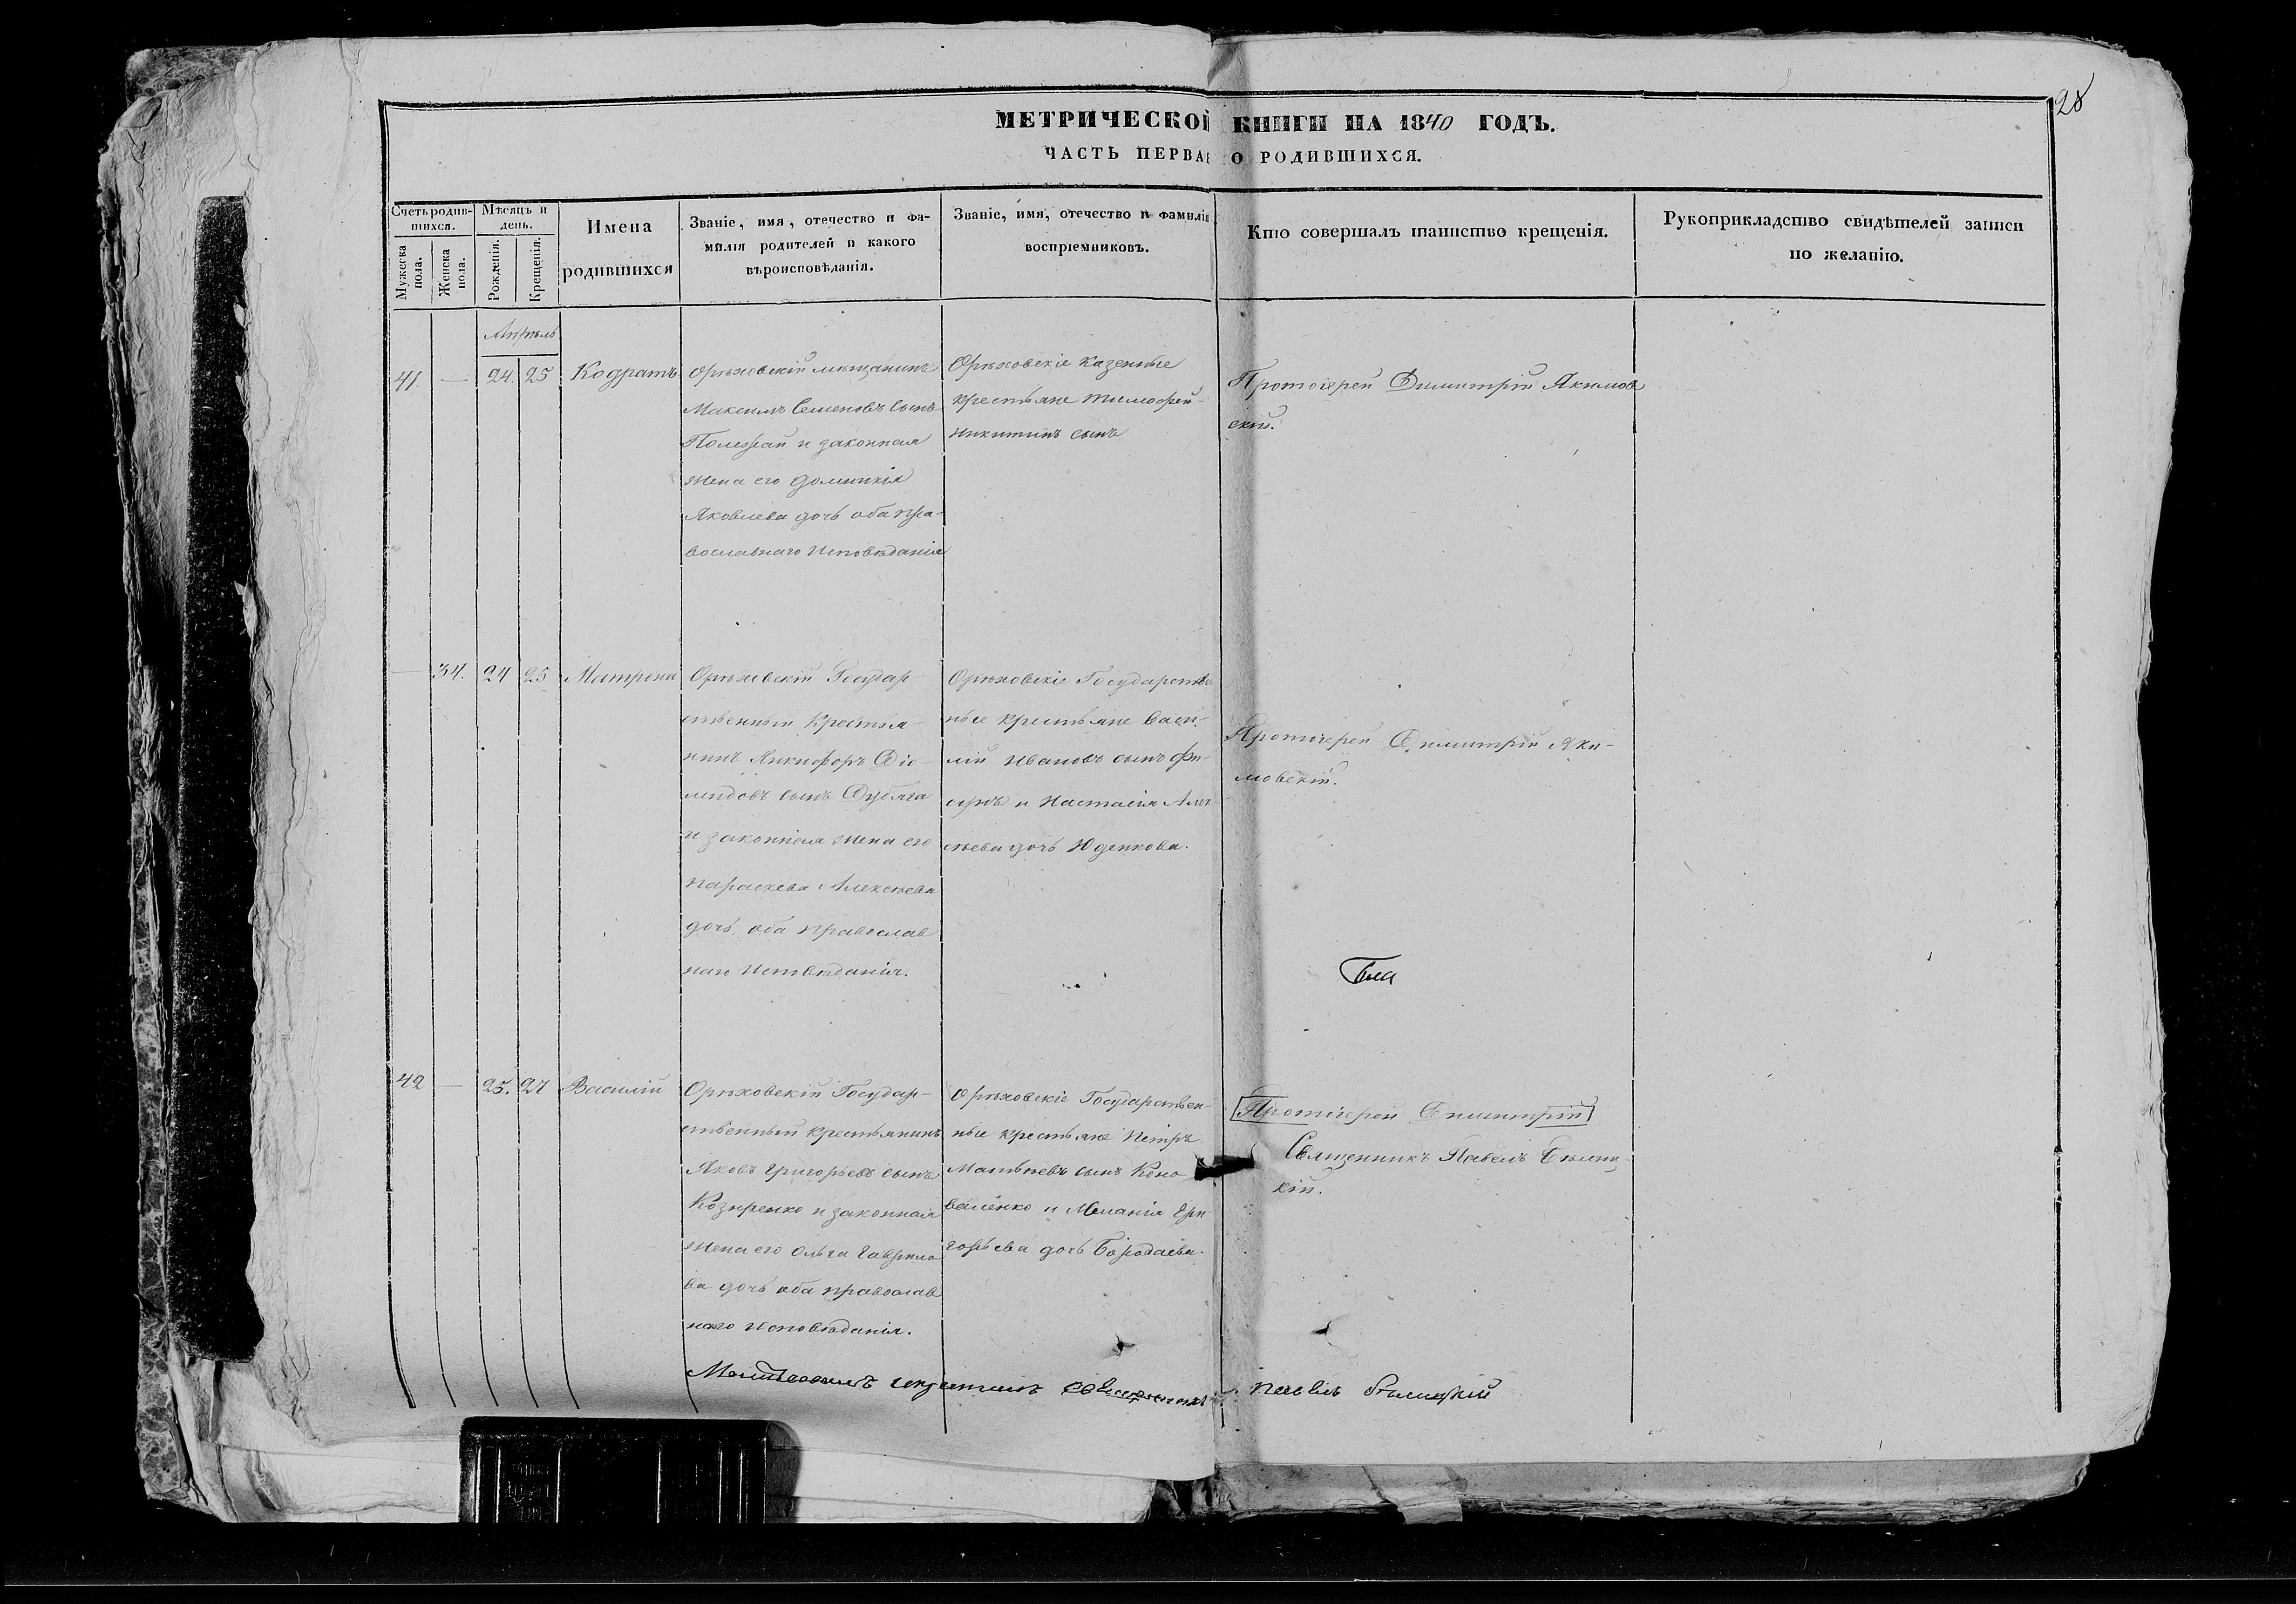 28
МЕТРИЧЕСКОЙ КНИГИ НА 1840 ГОДЪ.
ЧАСТЬ ПЕРВАЯ О РОДИВШИХСЯ.
Счетъ родив-
шихся.
Мужеска пола.
Женска пола.
Мѣсяцъ и
день.
Рожденія.
Крещенія.
Имена
родившихся
Званіе, имя, отечество и фа-
милія родителей и какого
вѣроисповѣданія.
Званіе, имя, отечество и фамилія
воспріемниковъ.
Кто совершалъ таинство крещенія.
Рукоприкладство свидѣтелей записи
по желанію.
Апрѣль
41 — 24. 25 Кодратъ
Орѣховскій мѣщанинъ
Максимъ Семеновъ сынъ
и законная
жена его Домникія
Яковлева дочь оба пра-
вославнаго Исповѣданія
Орѣховскіе казенные
крестьяне Тимофей
Никитинъ сынъ
Протоіерей Димитрій Якимов
скій.
— 34. 24 25 Матрона
Орѣховскій Государ-
ственный крестья-
нинъ Никифоръ Діо-
мидовъ сынъ Дубяга
и законная жена его
Параскева Алексѣева
дочь оба православ
наго Исповѣданія.
Орѣховскіе Государстве
ные крестьяне Васи-
лій Ивановъ сынъ
и Настасія Алек
сѣева дочь Юденкова.
Протоіерей Димитрій Яки-
мовскій.
42 — 25. 27 Василій
Орѣховскій Государ-
ственный крестьянинъ
Яковъ Григорьевъ сынъ
Козыренко и законная
жена его Ольга Гаврило
ва дочь оба православ
наго Исповѣданія.
Орѣховскіе Государствен-
ные крестьяне Петръ
Матвѣевъ сынъ Коно
валенко и Меланія Гри-
горьева дочь Бородаева.
Протоіерей Димитрій
Священникъ Павелъ Бѣлиц-
кій.
Молитвовалъ и крестилъ священникъ Павелъ Бѣлицкій